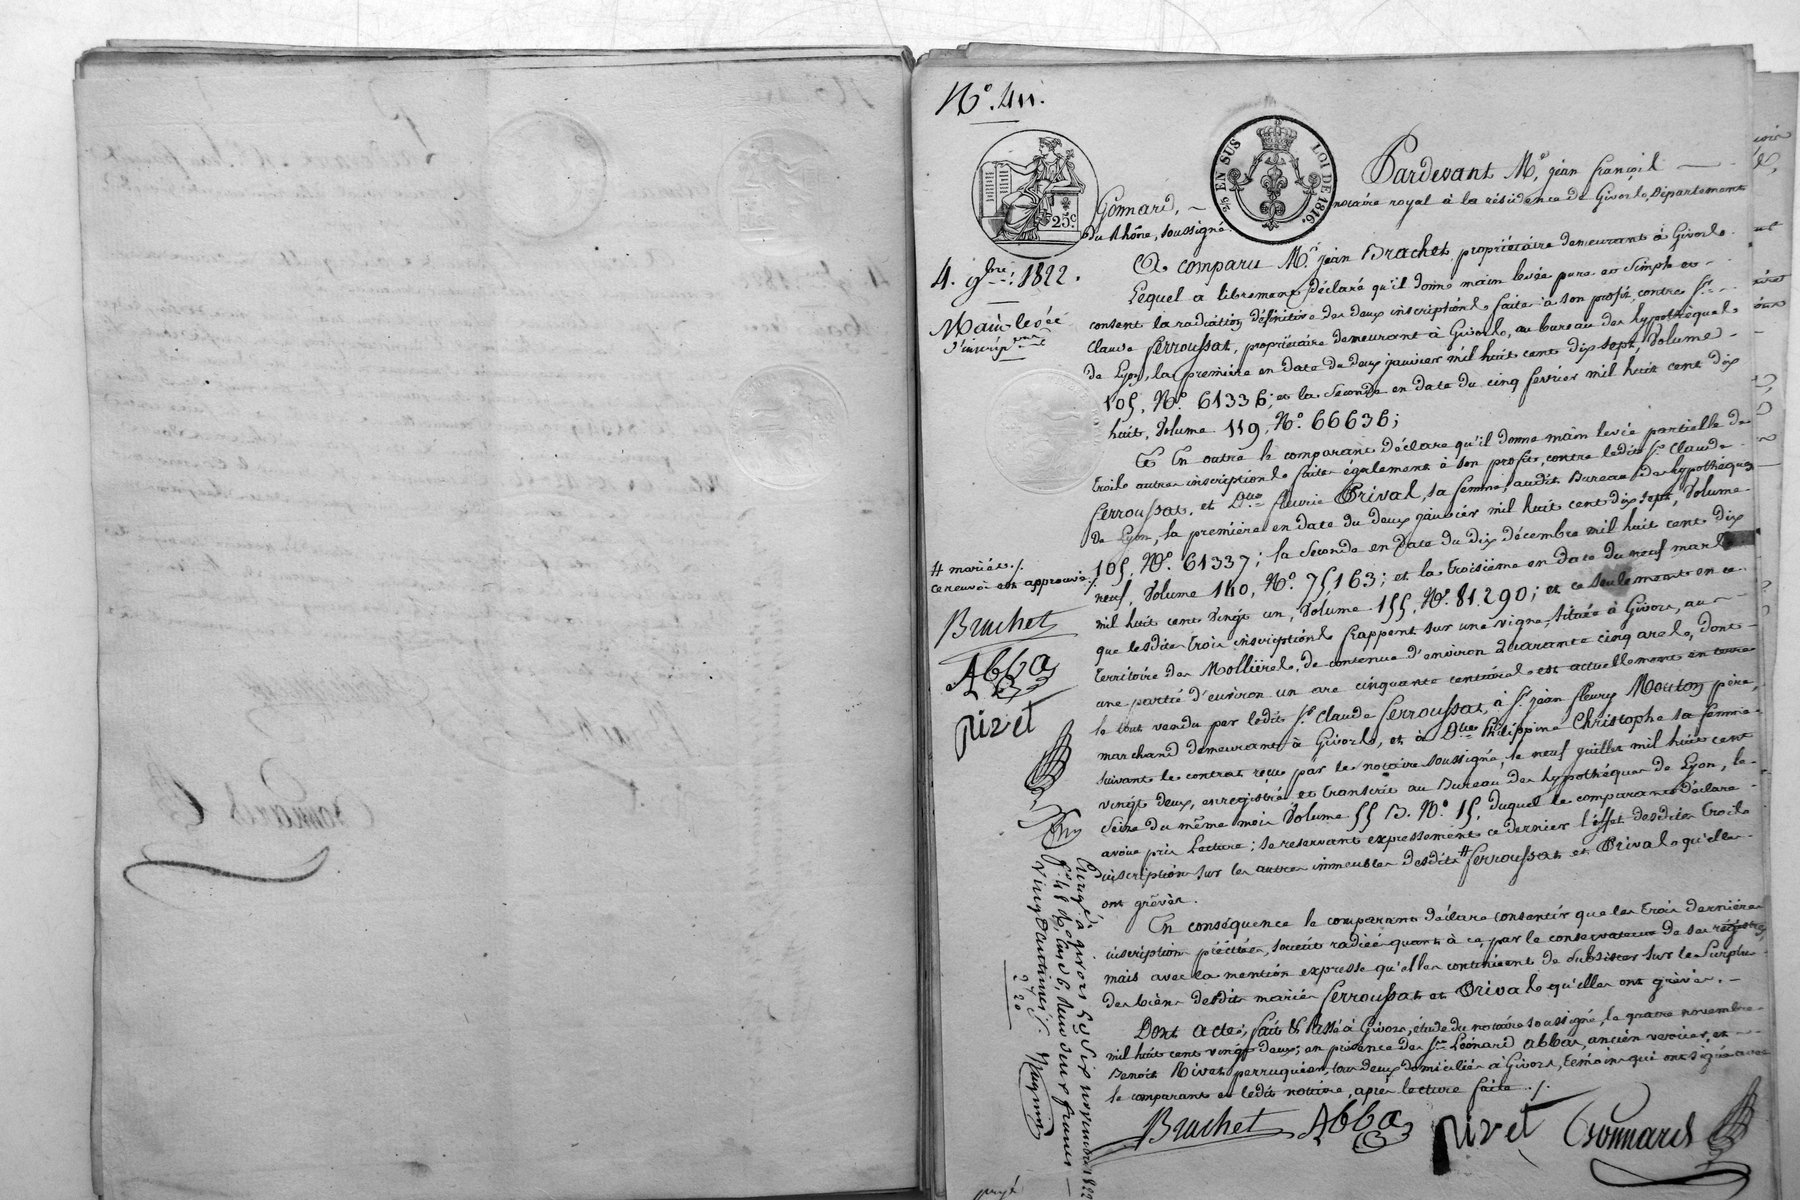 N.° 411.
25 EN SUS LOI DE 1816.
25.c
Pardevant M.e jean françois
Gonnard, notaire royal à la résidence de Givors, Département
du Rhône, soussigné.
4. 9bre 1822.
Main levée
d'inscription
A comparu M.r jean Brachet propriétaire demeurant à Givors
Lequel a librement déclaré qu'il donne main levée pure et simple et
consent la radiation définitive des deux inscriptions faites à son profit, contre s.r
Claude ferroussat, propriétaire demeurant à Givors, au bureau des hypothèques
de Lyon, la première en date du deux janvier mil huit cent dix sept, Volume
105, N.° 61336; et la seconde en date du cinq février mil huit cent dix
huit, Volume 119, N.° 66636;
Et En outre le comparant déclare qu'il donne main levée partielle de
trois autres inscriptions faites également à son profit, contre ledit s.r Claude
ferroussat, et D.me fleurie Prival, sa femme, audit Bureau des hypothèques
de Lyon, la première en date du deux janvier mil huit cent dix sept, Volume
105, N.° 61337; la seconde en date du dix décembre mil huit cent dix
neuf, Volume 140, N.° 75,163; et la troisième en date du neuf mars
mil huit cent vingt un, Volume 155, N.° 81.290; et ce seulement en ce
que lesdites trois inscriptions frappent sur une vigne, située à Givors, au
territoire des Mollières, de contenue d'environ quarante cinq ares, dont
une partie d'environ un are cinquante centiares est actuellement en terre
le tout vendu par ledit s.r Claude ferroussat, à s.r jean fleury Mouton père,
marchand demeurant à Givors, et à D.me Philippine Christophe sa femme
suivant le contrat reçu par le notaire soussigné, le neuf juillet mil huit cent
vingt deux, enregistré et transcrit au Bureau des hypothèques de Lyon, le
seize du même mois Volume 55 B. N.° 15, duquel le comparant déclare
avoir pris Lecture; se réservant expressément ce dernier l'effet desdites trois
inscriptions sur les autres immeubles desdits # ferroussat et Prival qu'elles
ont grévés.
En conséquence le comparant déclare consentir que les trois dernières
inscriptions précitées, soient radiées quant à ce, par le conservateur de ses registres,
mais avec la mention expresse qu'elles continuent de subsister sur le surplus
des biens desdits mariés ferroussat et Prival qu'elles ont grévés.
Dont acte, fait & passé à Givors, étude du notaire soussigné, le quatre novembre
mil huit cent vingt deux; en présence de s.rs Léonard abba, ancien verrier, et
Benoit Rivet perruquier, tous deux domiciliés à Givors, témoins qui ont signé avec
le comparant et ledit notaire, après lecture faite./.
Brachet Abba Rivet Gonnard
# mariés./.
ce renvoi est approuvé./.
Brachet
Abba
Rivet
Enregé à givors le six novembre 1822
deux francs
vingt centimes
2 20